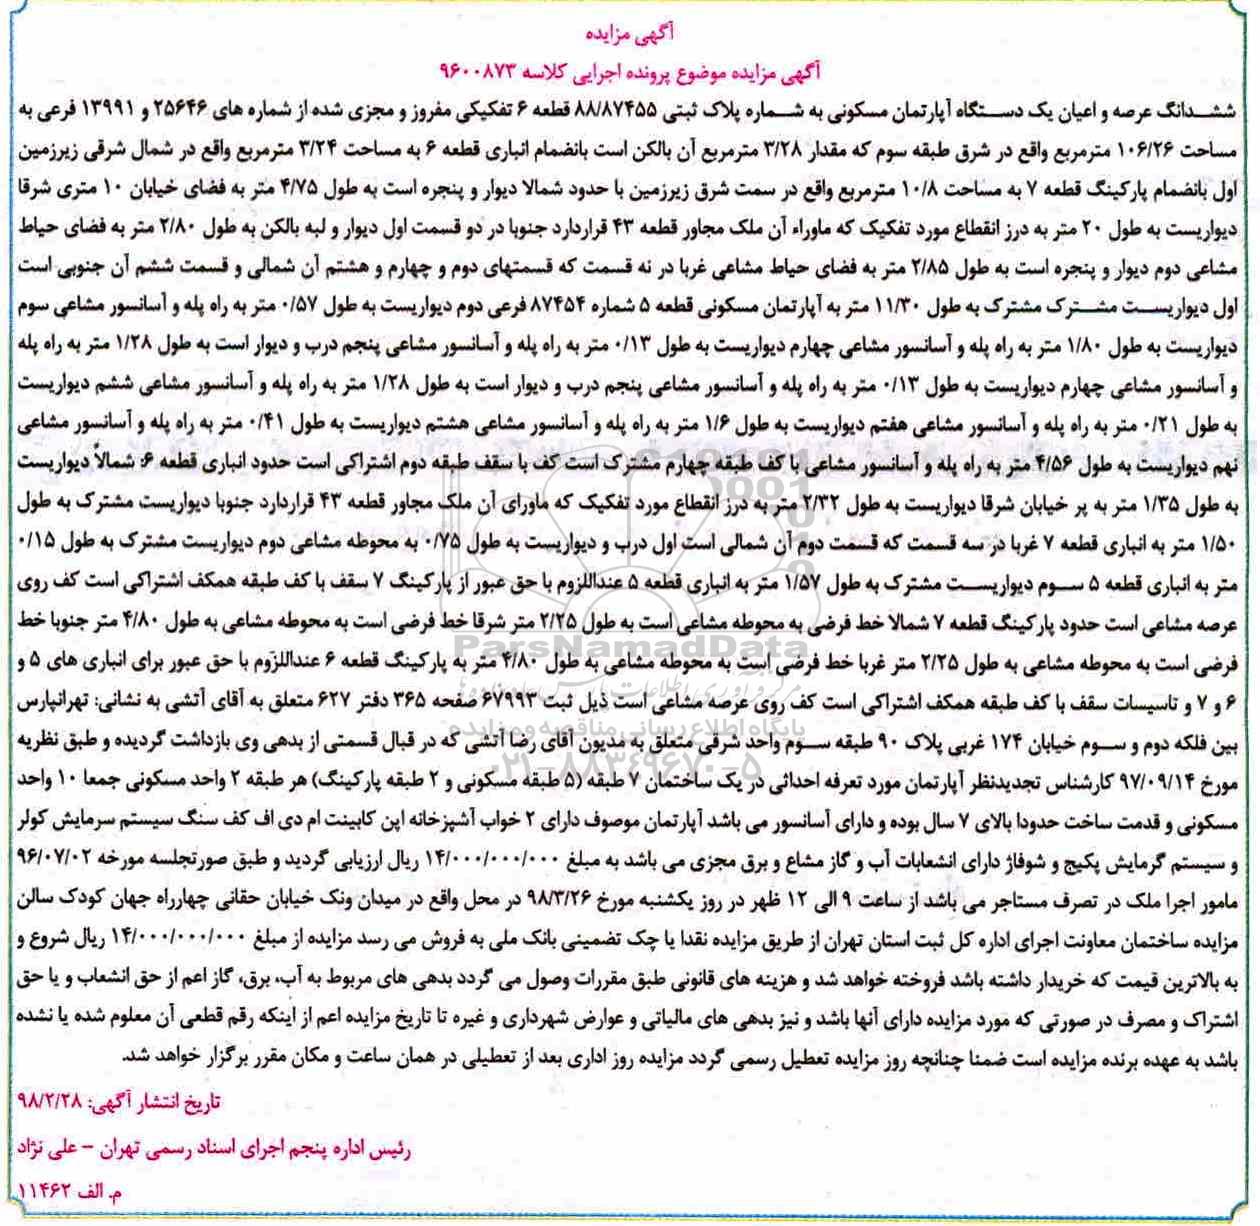 آگهی مزایده
آگهی مزایده موضوع پرونده اجرایی کلاسه ۹۶۰۰۸۷۳
ششدانگ عرصه و اعیان یک دستگاه آپارتمان مسکونی به شماره پلاک ثبتی ۸۸/۸۷۴۵۵ قطعه ۶ تفکیکی مفروز و مجزی شده از شماره های ۲۵۶۴۶ و ۱۳۹۹۱ فرعی به
مساحت ۱۰۶/۲۶ مترمربع واقع در شرق طبقه سوم که مقدار ۳/۲۸ مترمربع آن بالکن است بانضمام انباری قطعه ۶ به مساحت ۳/۲۴ مترمربع واقع در شمال شرقی زیرزمین
اول بانضمام پارکینگ قطعه ۷ به مساحت ۱۰/۸ مترمربع واقع در سمت شرق زیرزمین با حدود شمالا دیوار و پنجره است به طول ۴/۷۵ متر به فضای خیابان ۱۰ متری شرقا
دیواریست به طول ۲۰ متر به درز انقطاع مورد تفکیک که ماوراء آن ملک مجاور قطعه ۴۳ قراردارد جنوبا در دو قسمت اول دیوار و لبه بالکن به طول ۲/۸۰ متر به فضای حیاط
مشاعی دوم دیوار و پنجره است به طول ۲/۸۵ متر به فضای حیاط مشاعی غربا در نه قسمت که قسمتهای دوم و چهارم و هشتم آن شمالی و قسمت ششم آن جنوبی است
اول دیواریست مشترک مشترک به طول ۱۱/۳۰ متر به آپارتمان مسکونی قطعه ۵ شماره ۸۷۴۵۴ فرعی دوم دیواریست به طول ۰/۵۷ متر به راه پله و آسانسور مشاعی سوم
دیواریست به طول ۱/۸۰ متر به راه پله و آسانسور مشاعی چهارم دیواریست به طول ۰/۱۳ متر به راه پله و آسانسور مشاعی پنجم درب و دیوار است به طول ۱/۲۸ متر به راه پله
و آسانسور مشاعی چهارم دیواریست به طول ۰/۱۳ متر به راه پله و آسانسور مشاعی پنجم درب و دیوار است به طول ۱/۲۸ متر به راه پله و آسانسور مشاعی ششم دیواریست
به طول ۰/۲۱ متر به راه پله و آسانسور مشاعی هفتم دیواریست به طول ۱/۶ متر به راه پله و آسانسور مشاعی هشتم دیواریست به طول ۰/۴۱ متر به راه پله و آسانسور مشاعی
نهم دیواریست به طول ۴/۵۶ متر به راه پله و آسانسور مشاعی با کف طبقه چهارم مشترک است کف با سقف طبقه دوم اشتراکی است حدود انباری قطعه ۶: شمالاً دیواریست
به طول ۱/۳۵ متر به پر خیابان شرقا دیواریست به طول ۲/۳۲ متر به درز انقطاع مورد تفکیک که ماورای آن ملک مجاور قطعه ۴۳ قراردارد جنوبا دیواریست مشترک به طول
۱/۵۰ متر به انباری قطعه ۷ غربا در سه قسمت که قسمت دوم آن شمالی است اول درب و دیواریست به طول ۰/۷۵ به محوطه مشاعی دوم دیواریست مشترک به طول ۰/۱۵
متر به انباری قطعه ۵ سوم دیواریست مشترک به طول ۱/۵۷ متر به انباری قطعه ۵ عنداللزوم با حق عبور از پارکینگ ۷ سقف با کف طبقه همکف اشتراکی است کف روی
عرصه مشاعی است حدود پارکینگ قطعه ۷ شمالا خط فرضی به محوطه مشاعی است به طول ۲/۲۵ متر شرقا خط فرضی است به محوطه مشاعی به طول ۴/۸۰ متر جنوبا خط
فرضی است به محوطه مشاعی به طول ۲/۲۵ متر غربا خط فرضی است به محوطه مشاعی به طول ۴/۸۰ متر به پارکینگ قطعه ۶ عنداللزوم با حق عبور برای انباری های ۵ و
۶ و ۷ و تاسیسات سقف با کف طبقه همکف اشتراکی است کف روی عرصه مشاعی است ذیل ثبت ۶۷۹۹۳ صفحه ۳۶۵ دفتر ۶۲۷ متعلق به آقای آتشی به نشانی: تهرانپارس
بین فلکه دوم و سوم خیابان ۱۷۴ غربی پلاک ۹۰ طبقه سوم واحد شرقی متعلق به مدیون آقای رضا آتشی که در قبال قسمتی از بدهی وی بازداشت گردیده و طبق نظریه
مورخ ۹۷/۰۹/۱۴ کارشناس تجدیدنظر آپارتمان مورد تعرفه احداثی در یک ساختمان ۷ طبقه (۵ طبقه مسکونی و ۲ طبقه پارکینگ) هر طبقه ۲ واحد مسکونی جمعا ۱۰ واحد
مسکونی و قدمت ساخت حدودا بالای ۷ سال بوده و دارای آسانسور می باشد آپارتمان موصوف دارای ۲ خواب آشپزخانه اپن کابینت ام دی اف کف سنگ سیستم سرمایش کولر
و سیستم گرمایش پکیج و شوفاژ دارای انشعابات آب و گاز مشاع و برق مجزی می باشد به مبلغ ۱۴/۰۰۰/۰۰۰/۰۰۰ ریال ارزیابی گردید و طبق صورتجلسه مورخه ۹۶/۰۷/۰۲
مامور اجرا ملک در تصرف مستاجر می باشد از ساعت ۹ الی ۱۲ ظهر در روز یکشنبه مورخ ۹۸/۳/۲۶ در محل واقع در میدان ونک خیابان حقانی چهارراه جهان کودک سالن
مزایده ساختمان معاونت اجرای اداره کل ثبت استان تهران از طریق مزایده نقدا یا چک تضمینی بانک ملی به فروش می رسد مزایده از مبلغ ۱۴/۰۰۰/۰۰۰/۰۰۰ ریال شروع و
به بالاترین قیمت که خریدار داشته باشد فروخته خواهد شد و هزینه های قانونی طبق مقررات وصول می گردد بدهی های مربوط به آب، برق، گاز اعم از حق انشعاب و یا حق
اشتراک و مصرف در صورتی که مورد مزایده دارای آنها باشد و نیز بدهی های مالیاتی و عوارض شهرداری و غیره تا تاریخ مزایده اعم از اینکه رقم قطعی آن معلوم شده یا نشده
باشد به عهده برنده مزایده است ضمنا چنانچه روز مزایده تعطیل رسمی گردد مزایده روز اداری بعد از تعطیلی در همان ساعت و مکان مقرر برگزار خواهد شد.
تاریخ انتشار آگهی: ۹۸/۲/۲۸
رئیس اداره پنجم اجرای اسناد رسمی تهران - علی نژاد
م. الف ۱۱۴۶۲
ParsNamadData
پایگاه اطلاع رسانی مناقصه و مزایده
۰۲۱-۸۸۳۴۹۶۷۰-۵